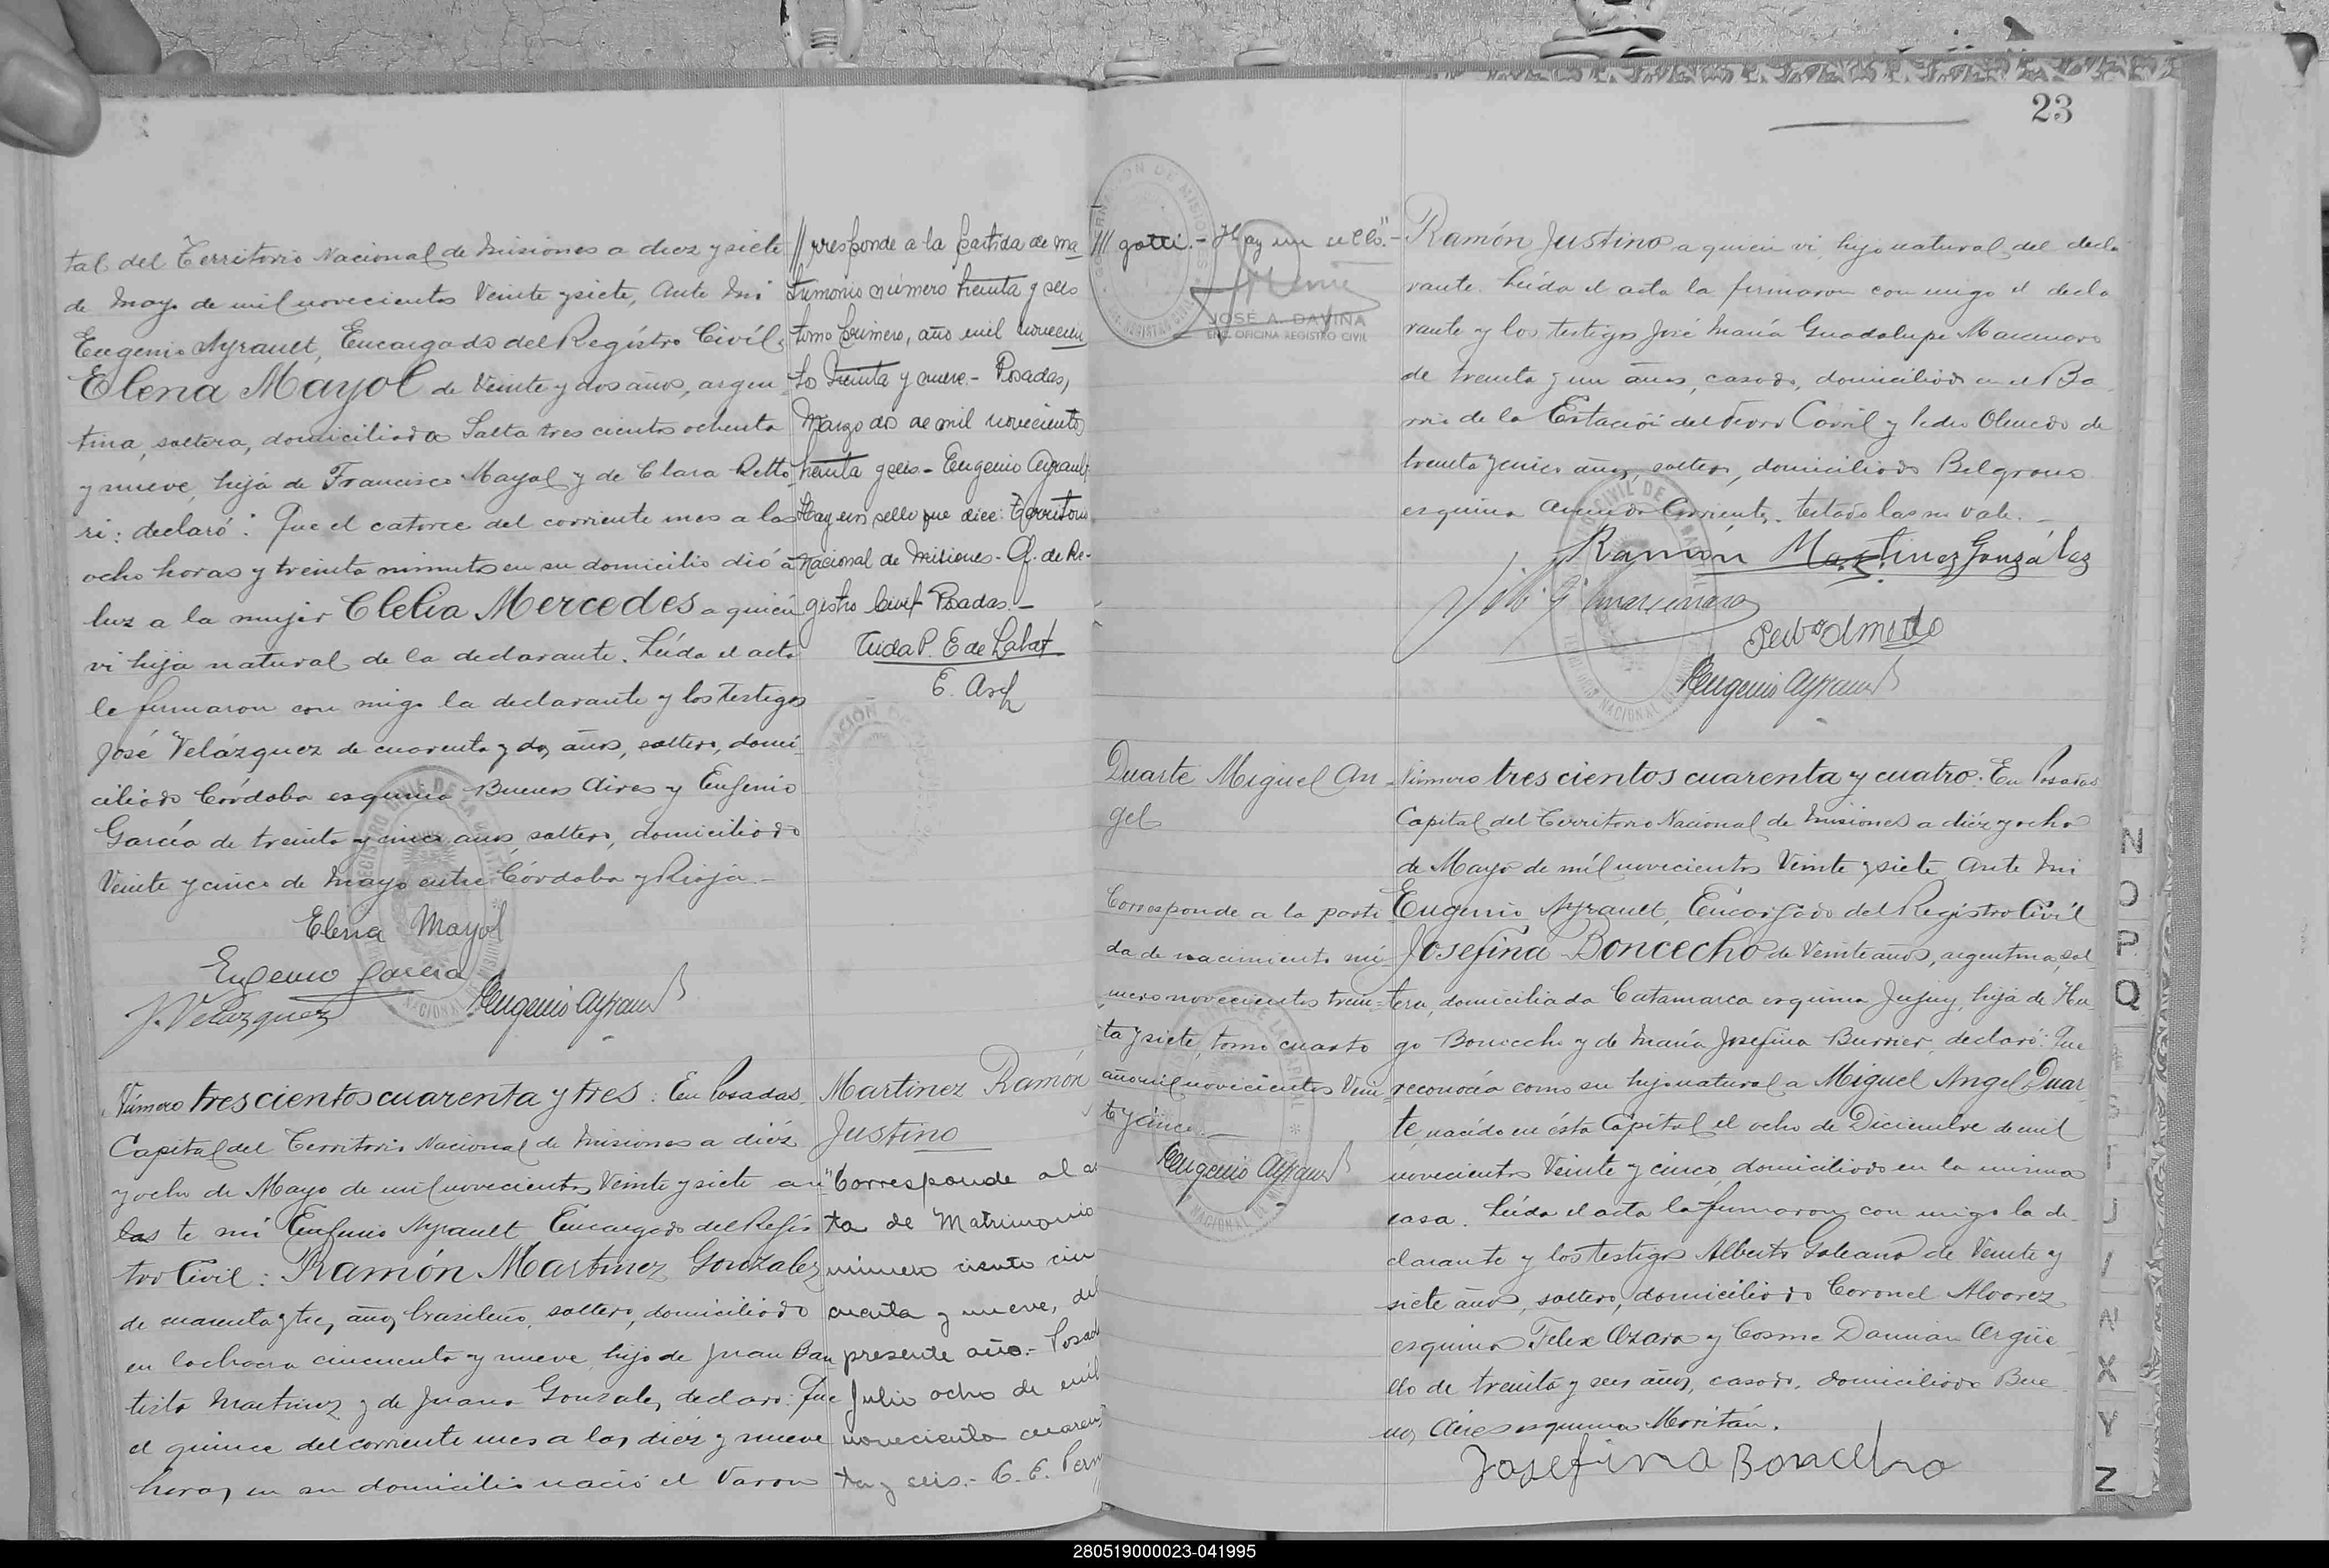 tal del Territorio Nacional de Misiones a diez y siete
de Mayo de mil novecientos Veinte y siete, Ante Mi
Eugenio Ayrault, Encargado del Registro Civil:
Elena Mayol de Veinte y dos años, argen
tina, soltera, domiciliada Salta trescientos ochenta
y nueve, hija de Francisco Mayol y de Clara Retto
ri: declaró: Que el catorce del corriente mes a las
ocho horas y treinta minutos en su domicilio dió a
luz a la mujer Clelia Mercedes a quién
vi hija natural de la declarante. Leída el acta
la firmaron con migo la declarante y los testigos
José Velázquez de cuarenta y dos años, soltero, domi
ciliado Córdoba esquina Buenos Aires y Eugenio
García de treinta y cinco años soltero, domiciliado
Veinte y cinco de Mayo entre Córdoba y Rioja.-
Elena Mayol
Eugenio Garcia
J. Velazquez
Eugenio Ayrault
Número trescientos cuarenta y tres: En Posadas,
Capital del Territorio Nacional de Misiones a diéz
y ocho de Mayo de mil novecientos Veinte y siete an
las te mí Eugenio Ayrault Encargado del Regis
tro Civil: Ramón Martinez Gonzalez
de cuarenta y tres años brasileño, soltero, domiciliado
en la chacra cincuenta y nueve, hijo de Juan Bau
tista Martinez y de Juana Gonzalez, declaró: Que
el quince del corriente mes a las diéz y nueve
horas en su domicilio nació el Varon
// rresponde a la partida de ma
trimonio número treinta y seis
tomo primero, año mil novecien
tos treinta y nueve - Posadas,
Marzo dos de mil novecientos
treinta y seis - Eugenio Ayrault
Hay un sello que dice: Territorio
Nacional de Misiones - Of. de Re-
gistro Civil Posadas.-
E. de Labat
Martinez Ramón
Justino
"Corresponde al ac
ta de Matrimonio
número ciento cin
cuenta y nueve, del
presente año.- Posad
Julio ocho de mil
novecientos cuaren
ta y seis.- C. E. Pern
23
/// gotti.- Hay un sello."-
JOSÉ A. DAVIÑA
ENC. OFICINA REGISTRO CIVIL
Ramón Justino a quien vi, hijo natural del decla
rante. Leída el acta la firmaron con migo el decla
rante y los testigos José María Guadalupe Marcinaro
de treinta y un años, casado, domiciliado en el Ba
rrio de la Estación del Ferro Carril y Pedro Olmedo de
treinta y cinco años, soltero, domiciliado Belgrano
esquina Avenida Corrientes. Testado las no vale.-
Ramón Martinez González
Pedro Olmedo
Eugenio Ayrault
Duarte Miguel An
gel
Corresponde a la parti
da de nacimiento nú-
mero novecientos trein-
ta y siete, tomo cuarto
año mil novecientos Vein
te y cinco.-
Eugenio Ayrault
Número trescientos cuarenta y cuatro: En Posadas
Capital del Territorio Nacional de Misiones a diéz y ocho
de Mayo de mil novecientos Veinte y siete Ante Mi
Eugenio Ayrault, Encargado del Registro Civil
Josefina Boncecho de Veinte años, argentina, sol-
tera, domiciliada Catamarca esquina Jujuy, hija de Hu-
go Boncecho y de María Josefina Burrier, declaró: Que
reconocía como su hijo natural a Miguel Angel Duar
te, nacido en ésta Capital el ocho de Diciembre de mil
novecientos Veinte y cinco, domiciliado en la misma
casa. Leída el acta la firmaron con migo la de-
clarante y los testigos Alberto Galeano de Veinte y
siete años, soltero, domiciliado Coronel Alvarez
esquina Felix Azara y Cosme Damian Argüe
llo de treinta y seis años, casado, domiciliado Bue
nos Aires esquina Moritán.
Josefina Boncecho
N
O
P
Q
S
T
X
Y
Z
280519000023-041995